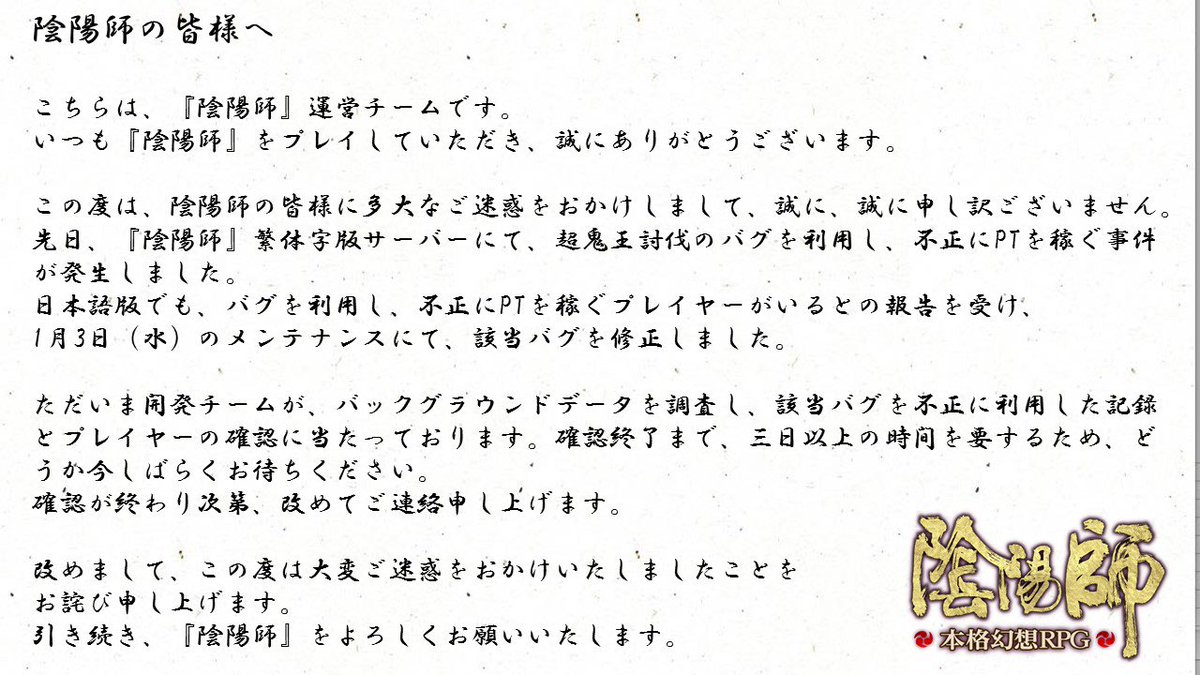 陰陽師の皆様へ
こちらは、『陰陽師』運営チームです。
いつも『陰陽師』をプレイしていただき、誠にありがとうございます。
この度は、陰陽師の皆様に多大なご迷惑をおかけしまして、誠に、誠に申し訳ございません。
先日、『陰陽師』繁体字版サーバーにて、超鬼王討伐のバグを利用し、不正にPTを稼ぐ事件
が発生しました。
日本語版でも、バグを利用し、不正にPTを稼ぐプレイヤーがいるとの報告を受け、
1月3日（水）のメンテナンスにて、該当バグを修正しました。
ただいま開発チームが、バックグラウンドデータを調査し、該当バグを不正に利用した記録
とプレイヤーの確認に当たっております。確認終了まで、三日以上の時間を要するため、ど
うか今しばらくお待ちください。
確認が終わり次第、改めてご連絡申し上げます。
改めまして、この度は大変ご迷惑をおかけいたしましたことを
お詫び申し上げます。
引き続き、『陰陽師』をよろしくお願いいたします。
陰陽師
本格幻想RPG